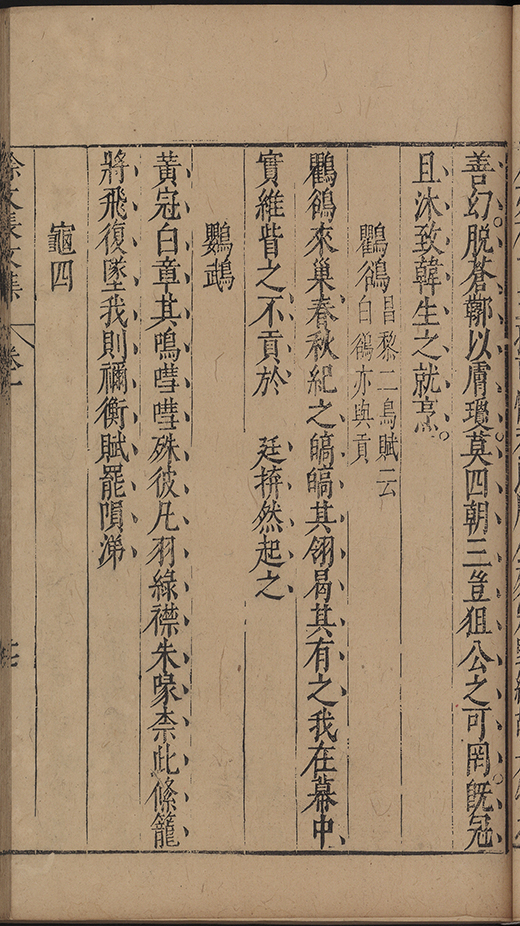 善幻脫蒼鞹以膚瓊莫四朝三豈狙公之可罔既冠
且沐致韓生之就烹
鸜鵒昌黎二鳥賦云白鵒亦與貢
鸜鵒來巢春秋紀之皜皜其翎曷其有之我在幕中
實維眥之不貢於 廷拚然起之
鸚鵡
黃冠白章其鳴嘒嘒殊彼凡羽綠襟朱喙柰此絛籠
將飛復墜我則禰衡賦罷隕涕
龜四
徐文長文集 卷一